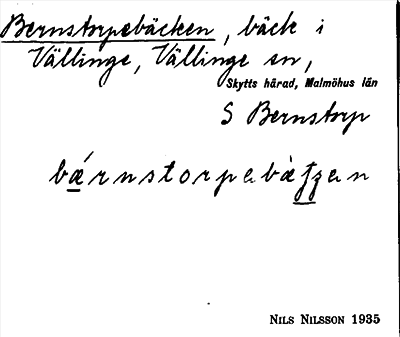 Bernstorpebäcken, bäck i
Vällinge, Vällinge sn,
Skytts härad, Malmöhus län
S Bernstorp
bǽrnstorpebä̀ʃʒen
NILS NILSSON 1935